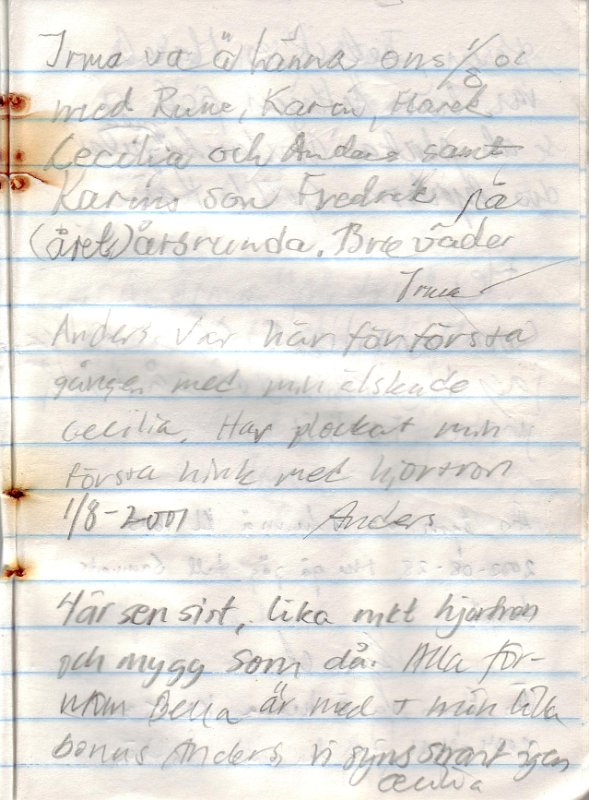 Irma va å hänna ons 1/8 01
med Rune, Karin, Marek,
Cecilia och Anders samt
Karins son Fredrik på
(årets) årsrunda. Bra väder
Irma
Anders var här för första
gången med min älskade
Cecilia. Har plockat min
första hink med hjortron
1/8-2001 Anders
4 år sen sist, lika mkt hjortron
och mygg som då. Alla för-
utom Bella är med + min lilla
bonus Anders, vi syns snart igen
Cecilia